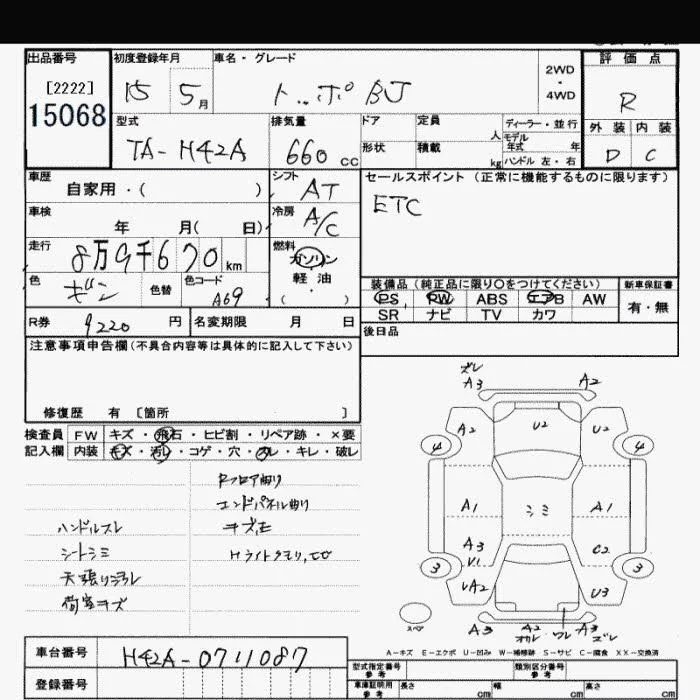 出品番号
[2222]
15068
初度登録年月
15 5月
車名・グレード
トッポBJ
2WD
・
4WD
評価点
R
外装 内装
D C
型式
TA-H42A
排気量
660 cc
ドア
形状
定員 人
積載 kg
ディーラー・並行
モデル年式 年
ハンドル 左・右
車歴
自家用・( )
シフト
AT
セールスポイント (正常に機能するものに限ります)
ETC
車検
年 月( 日)
冷房
A/C
走行
8万9千670km
燃料
ガソリン
軽油
・
( )
色
ギン
色替
色コード
A69
装備品 (純正品に限り○をつけてください)
新車保証書
PS PW ABS エアB AW
SR ナビ TV カワ
有・無
R券 9220 円
名変期限 月 日
後日品
注意事項申告欄(不具合内容等は具体的に記入して下さい)
修復歴 有 [箇所 ]
検査員記入欄
FW キズ・飛石・ヒビ割・リペア跡・×要
内装 キズ・汚レ・コゲ・穴・スレ・キレ・破レ
Rフロア曲り
エンドパネル曲り
ハンドルスレ
シートシミ
天張リ汚レ
荷室キズ
ズレ
A3 A2
A2 U2 U2
4 4
A1 シミ A1
A3 C2
V1
3 3
UA2 U3
スペア
A3 A2 A3
オカレ ワレ ズレ
A-キズ E-エクボ U-凹み W-補修跡 S-サビ C-腐食 XX-交換済
車台番号
H42A-0711087
登録番号
型式指定番号
参考
類別区分番号
参考
車庫証明用
参考
長さ cm
幅 cm
高さ cm